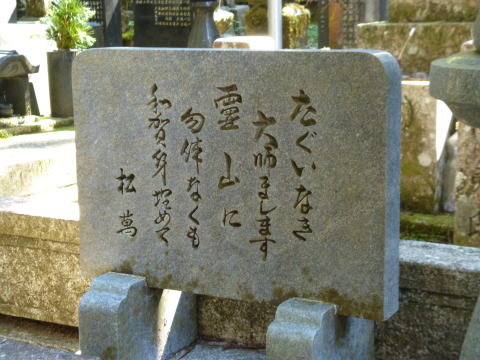 たぐいなき
大師まします
霊山に
勿体なくも
和賀身埋めて
松萬